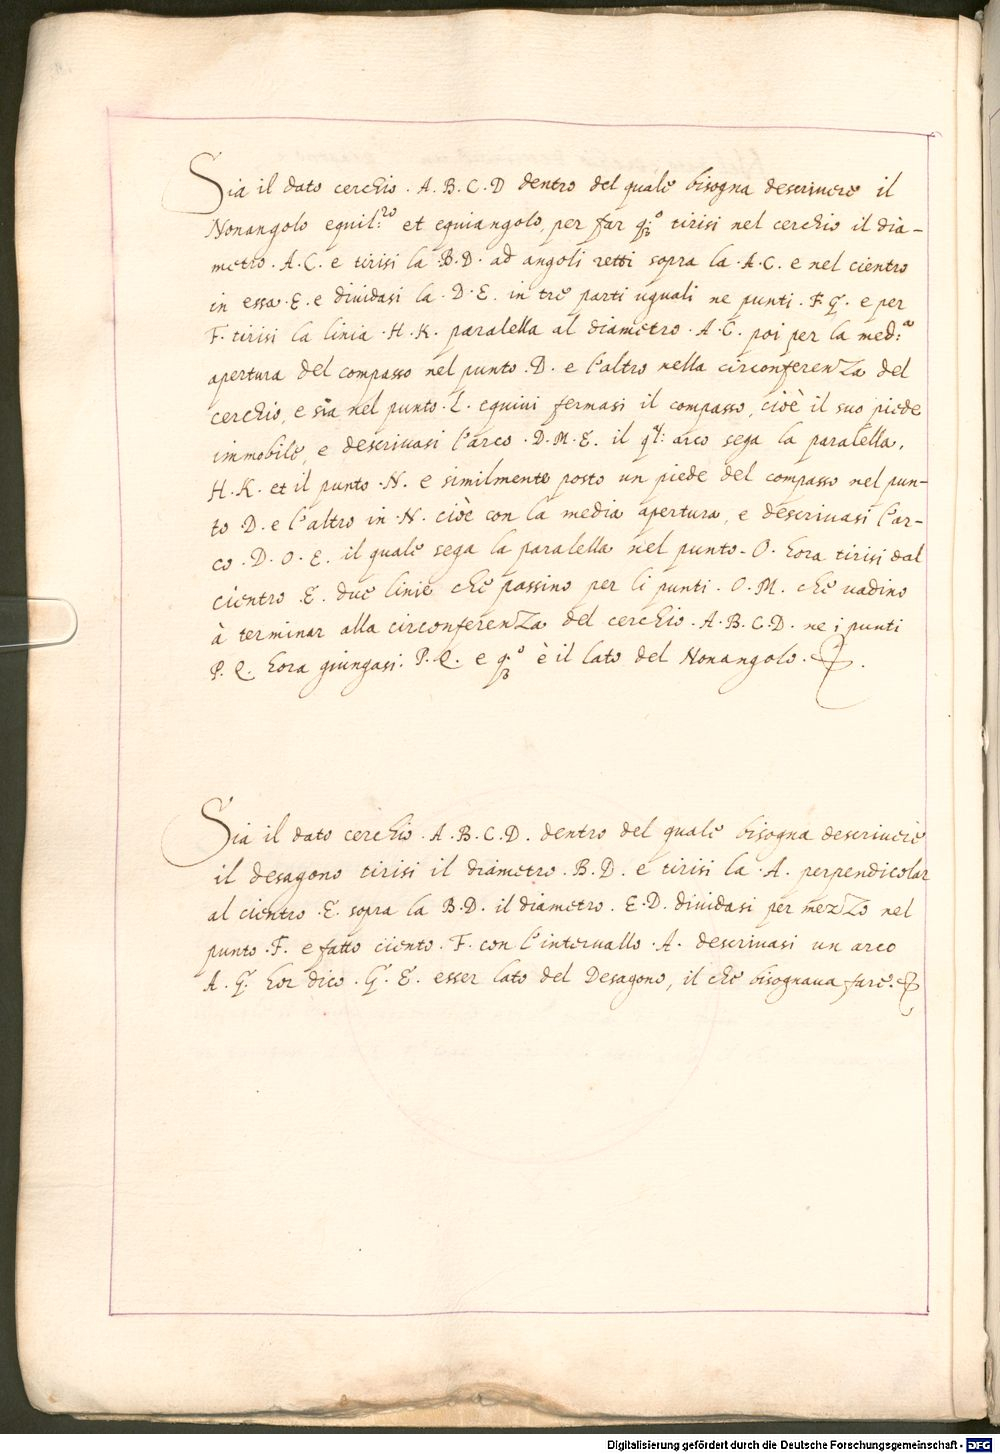 Sia il dato cerchio . A. B. C. D dentro del quale bisogna descrivere il
Nonangolo equil:ro et equiangolo, per far q:o tirisi nel cerchio il dia-
metro . A. C. e tirisi la . B. D . ad angoli retti sopra la . A. C. e nel cientro
in essa . E. e dividasi la . D. E. in tre parti uguali ne punti . F. G. e per
F. tirisi la linia . H. K. paralella al diametro . A. C. poi per la med:a
apertura del compasso nel punto . D. e l'altro nella circonferenza del
cerchio, e sia nel punto . L. equini fermasi il compasso, cioè il suo piede
immobile, e descrivasi l'arco . D. M. E. il ql: arco sega la paralella,
H. K. et il punto . N. e similmente posto un piede del compasso nel pun-
to . D. e l'altro in . N. cioè con la media apertura, e descrivasi l'ar-
co . D. O. E. il quale sega la paralella nel punto . O. hora tirisi dal
cientro . E. due linie che passino per li punti . O. M. che vadino
à terminar alla circonferenza del cerchio . A. B. C. D. ne i punti
P. Q. hora giungasi . P. Q. e q:o è il lato del Nonangolo .
Sia il dato cerchio . A. B. C. D. dentro del quale bisogna descrivere
il desagono tirisi il diametro . B. D. e tirisi la . A. perpendicolar
al cientro . E. sopra la B. D. il diametro . E. D. dividasi per mezzo nel
punto . F. e fatto ciento . F. con l'intervallo . A. descrivasi un arco
A. G. hor dico . G. E. esser lato del Desagono, il che bisognava fare.
Digitalisierung gefördert durch die Deutsche Forschungsgemeinschaft - DFG